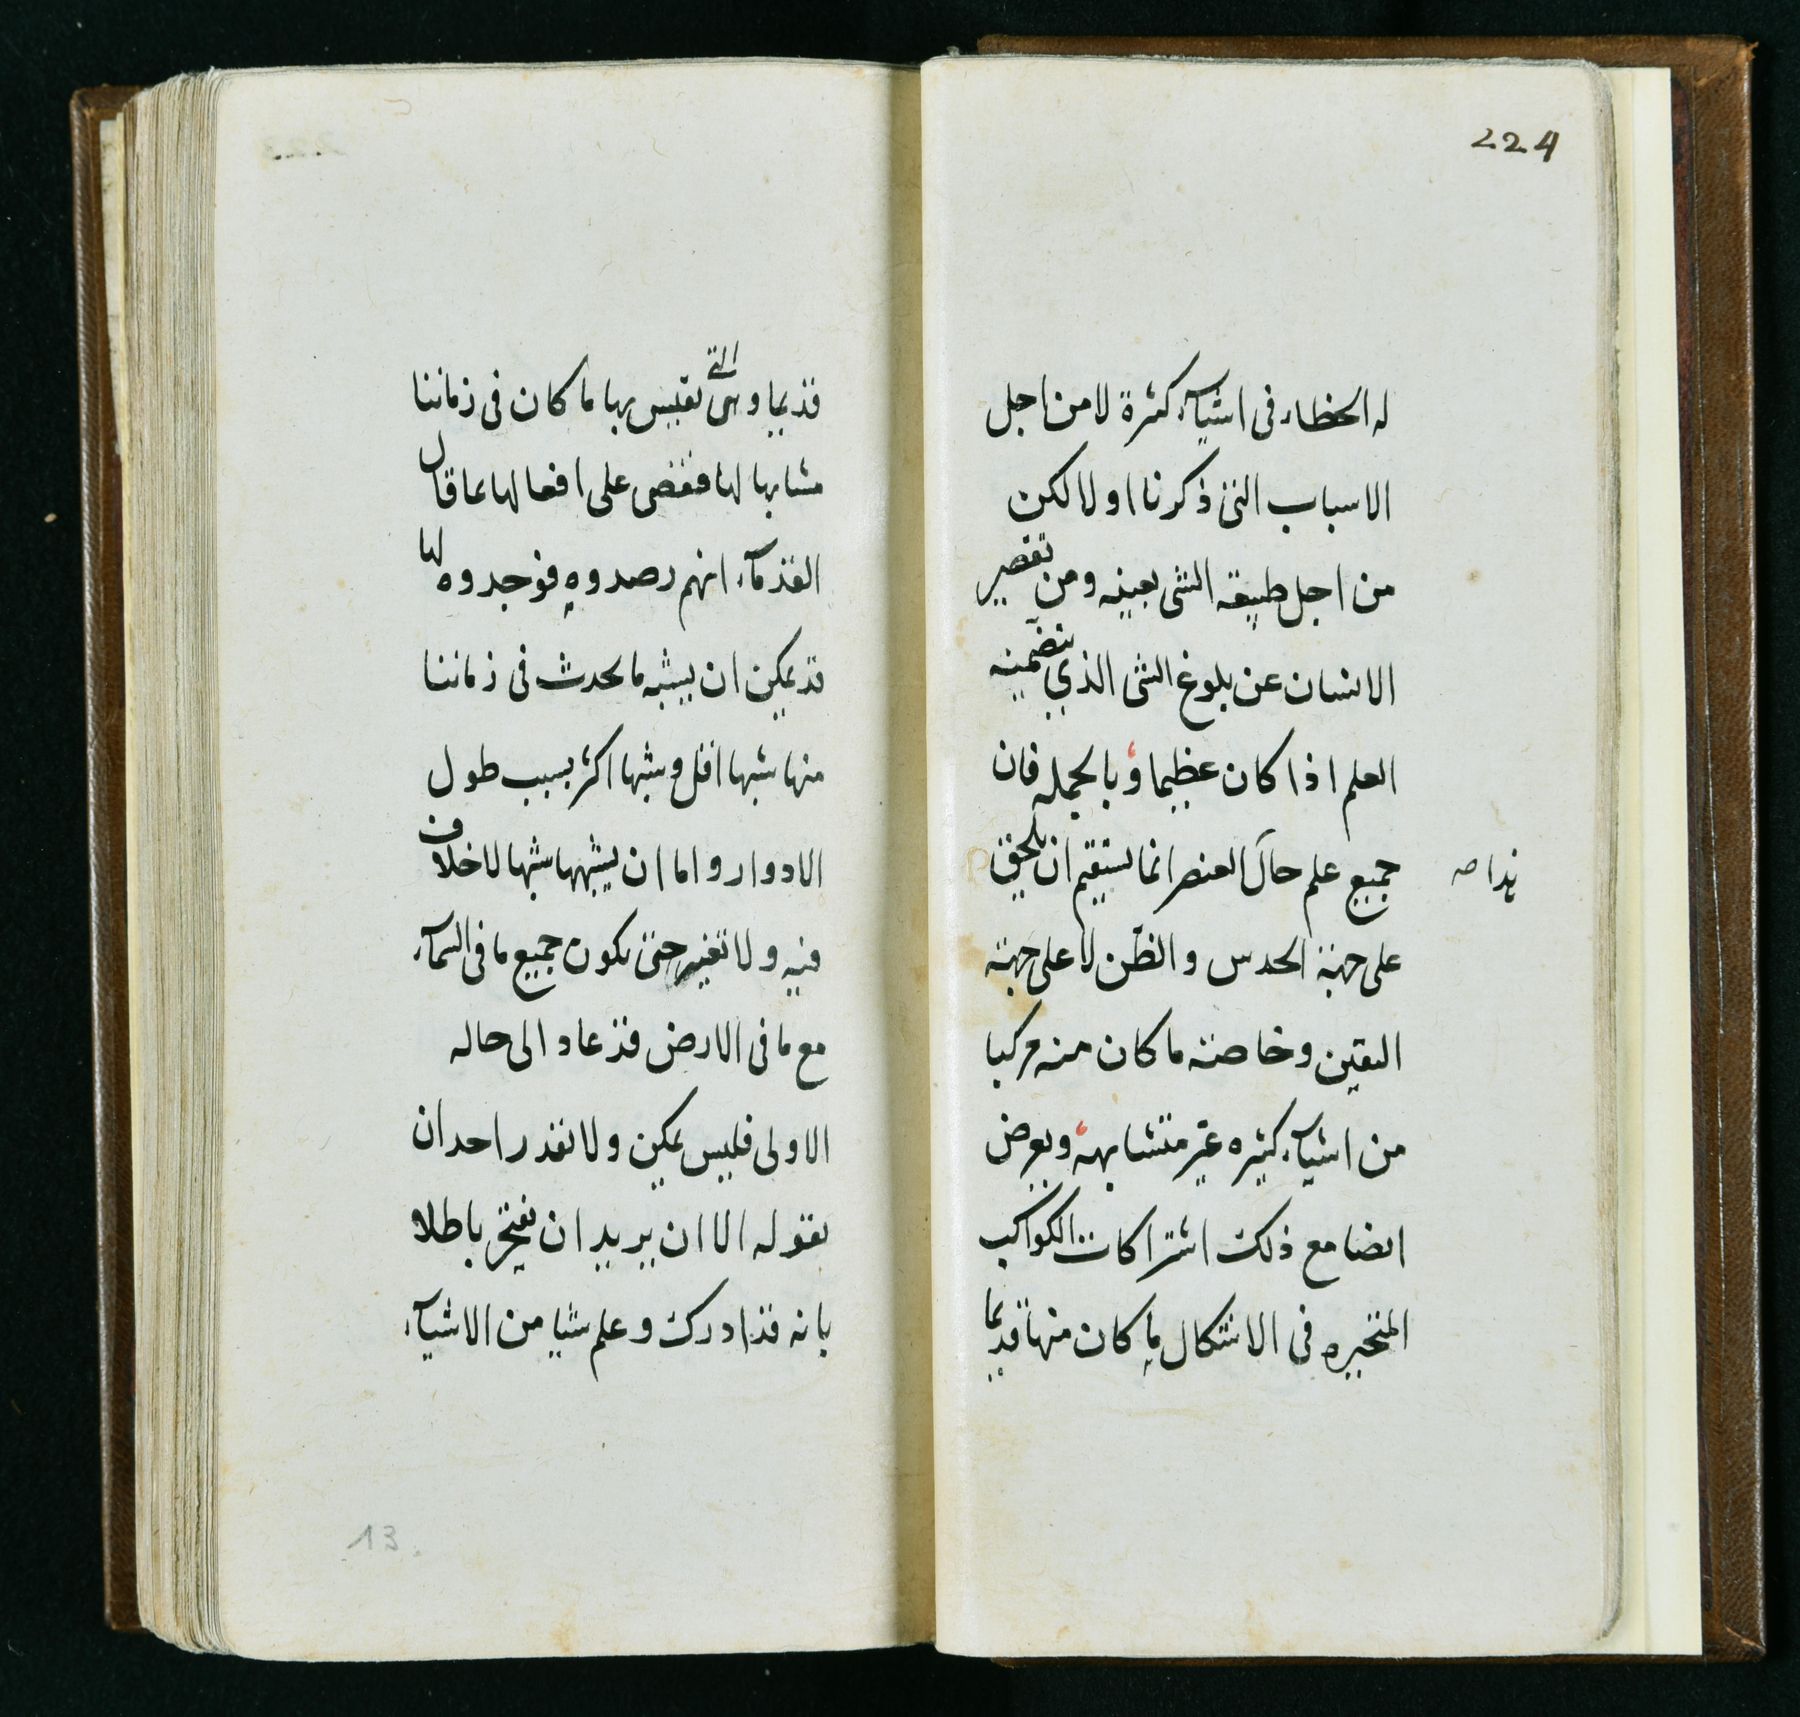 224
له الخطاء فى اشيآء كثرة لا من اجل
الاسباب التى ذكرنا اولا لكن
من اجل طبيعة الشى بعينه ومن تقصير
الانسان عن بلوغ الشى الذي يتضمنه
العلم اذا كان عظيما وبالجمله فان
جميع علم حال العنصر انما يستقيم ان يلحق
على جهة الحدس والظن لا على جهة
اليقين وخاصته ما كان منه مركبا
من اشيآء كثيره غير متشابهه ويعرض
ايضا مع ذلك اشتراكات الكواكب
المتحيره فى الاشكال ما كان منها قديما
قديما وهى التى نقيس بها ما كان فى زماننا
مشابها لها فنقضى على افعالها بما قال
القدمآء انهم رصدوه فوجدوه لها
قد يمكن ان يشبه ما يحدث فى زماننا
منها شبها اقل وشبها اكثر بسبب طول
الادوار واما ان يشبهها شبها لا خلاف
فيه ولا تغير حتى يكون جميع ما فى السمآء
مع ما فى الارض قد عاد الى حاله
الاولى فليس يمكن ولا يقدر احد ان
يقوله الا ان يريد ان يفتخر باطلا
بانه قد ادرك وعلم شيا من الاشيآء
13